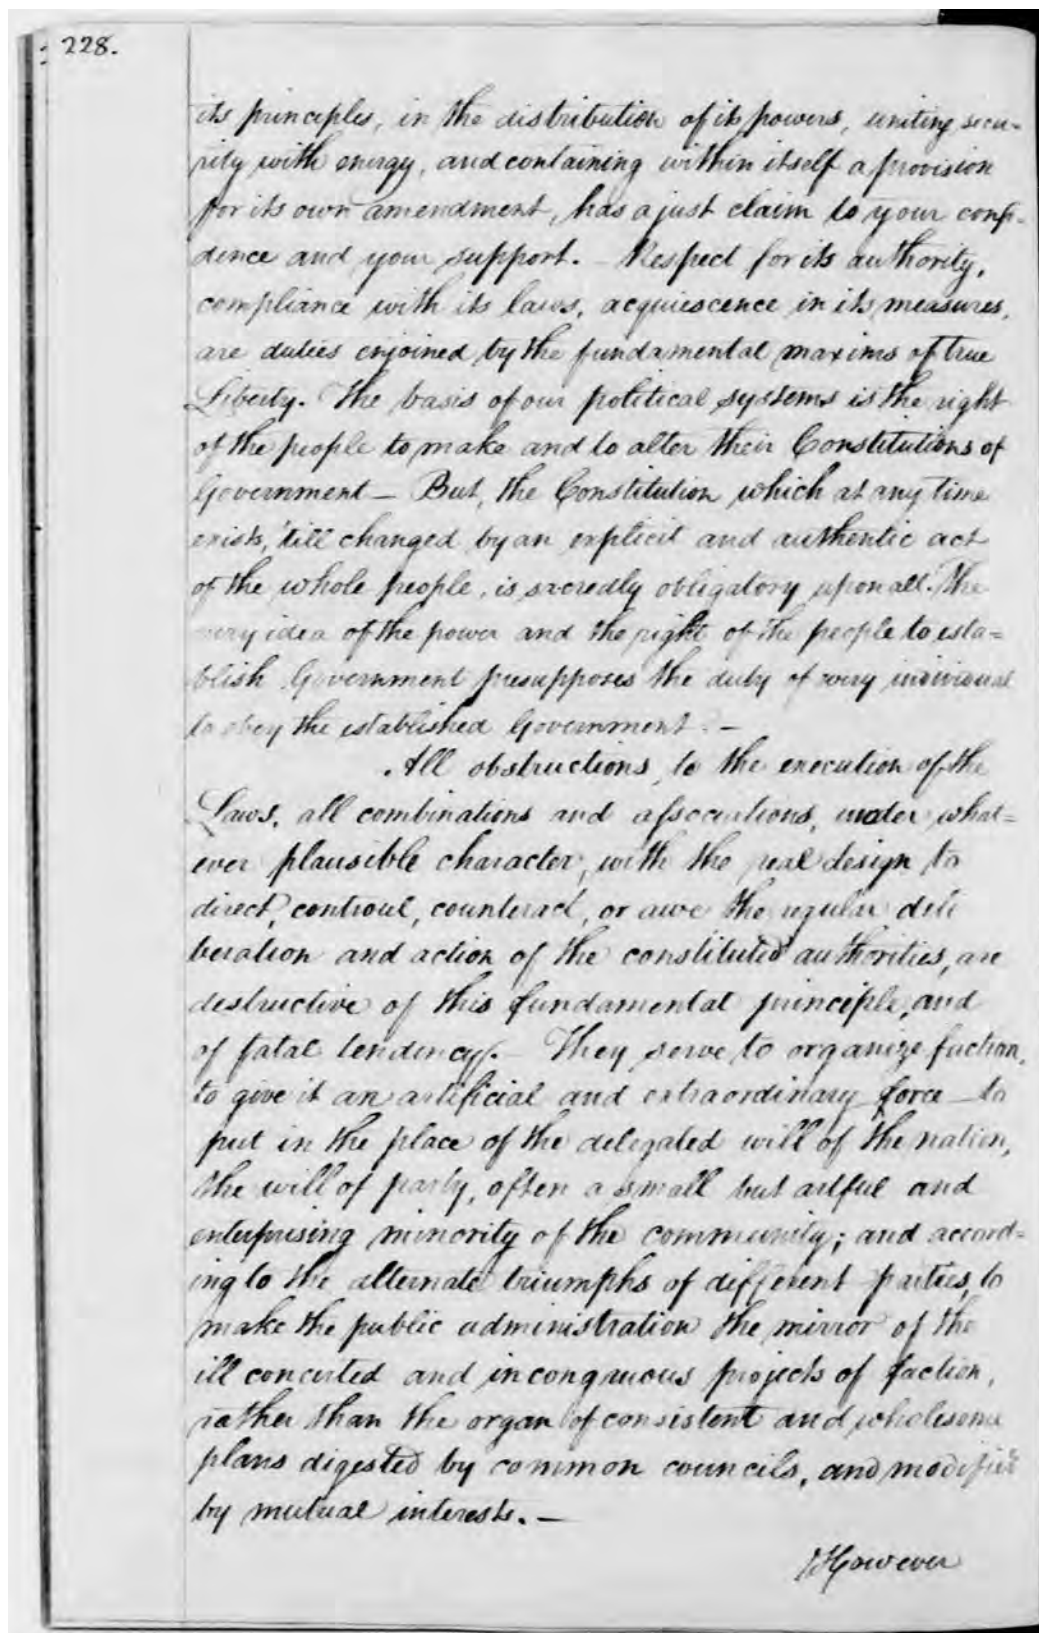 228.
its principles, in the distribution of its powers, uniting secu-
rity with energy, and containing within itself a provision
for its own amendment, has a just claim to your confi-
dence and your support. - Respect for its authority,
compliance with its laws, acquiescence in its measures,
are duties enjoined by the fundamental maxims of true
Liberty. The basis of our political systems is the right
of the people to make and to alter their Constitutions of
Government - But, the Constitution which at any time
exists, 'till changed by an explicit and authentic act
of the whole people, is sacredly obligatory upon all. The
very idea of the power and the right of the people to esta=
blish Government presupposes the duty of every individual
to obey the established Government. -
All obstructions, to the execution of the
Laws, all combinations and associations, under what=
ever plausible character, with the real design to
direct, controul, counteract, or awe the regular deli
beration and action of the constituted authorities, are
destructive of this fundamental principle, and
of fatal tendency. - They serve to organize faction,
to give it an artificial and extraordinary force - to
put in the place of the delegated will of the nation,
the will of party, often a small but artful and
enterprising minority of the community; and accord=
ing to the alternate triumphs of different parties, to
make the public administration the mirror of the
ill concerted and incongruous projects of faction,
rather than the organ of consistent and wholesome
plans digested by common councils, and modified
by mutual interests. -
However